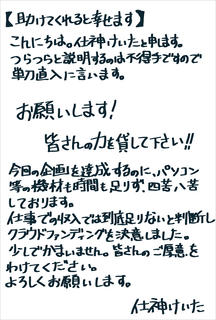 【助けてくれると幸せます】
こんにちは。仕神けいたと申ます。
つらつらと説明するのは不得手ですので
単刀直入に言います。
お願いします!
皆さんの力を貸して下さい!!
今回の企画を達成するのに、パソコン
等の機材も時間も足りず、四苦八苦
しております。
仕事での収入では到底足りないと判断し
クラウドファンディングを決意しました。
少しでかまいません。皆さんのご厚意を
わけてください。
よろしくお願いします。
仕神けいた